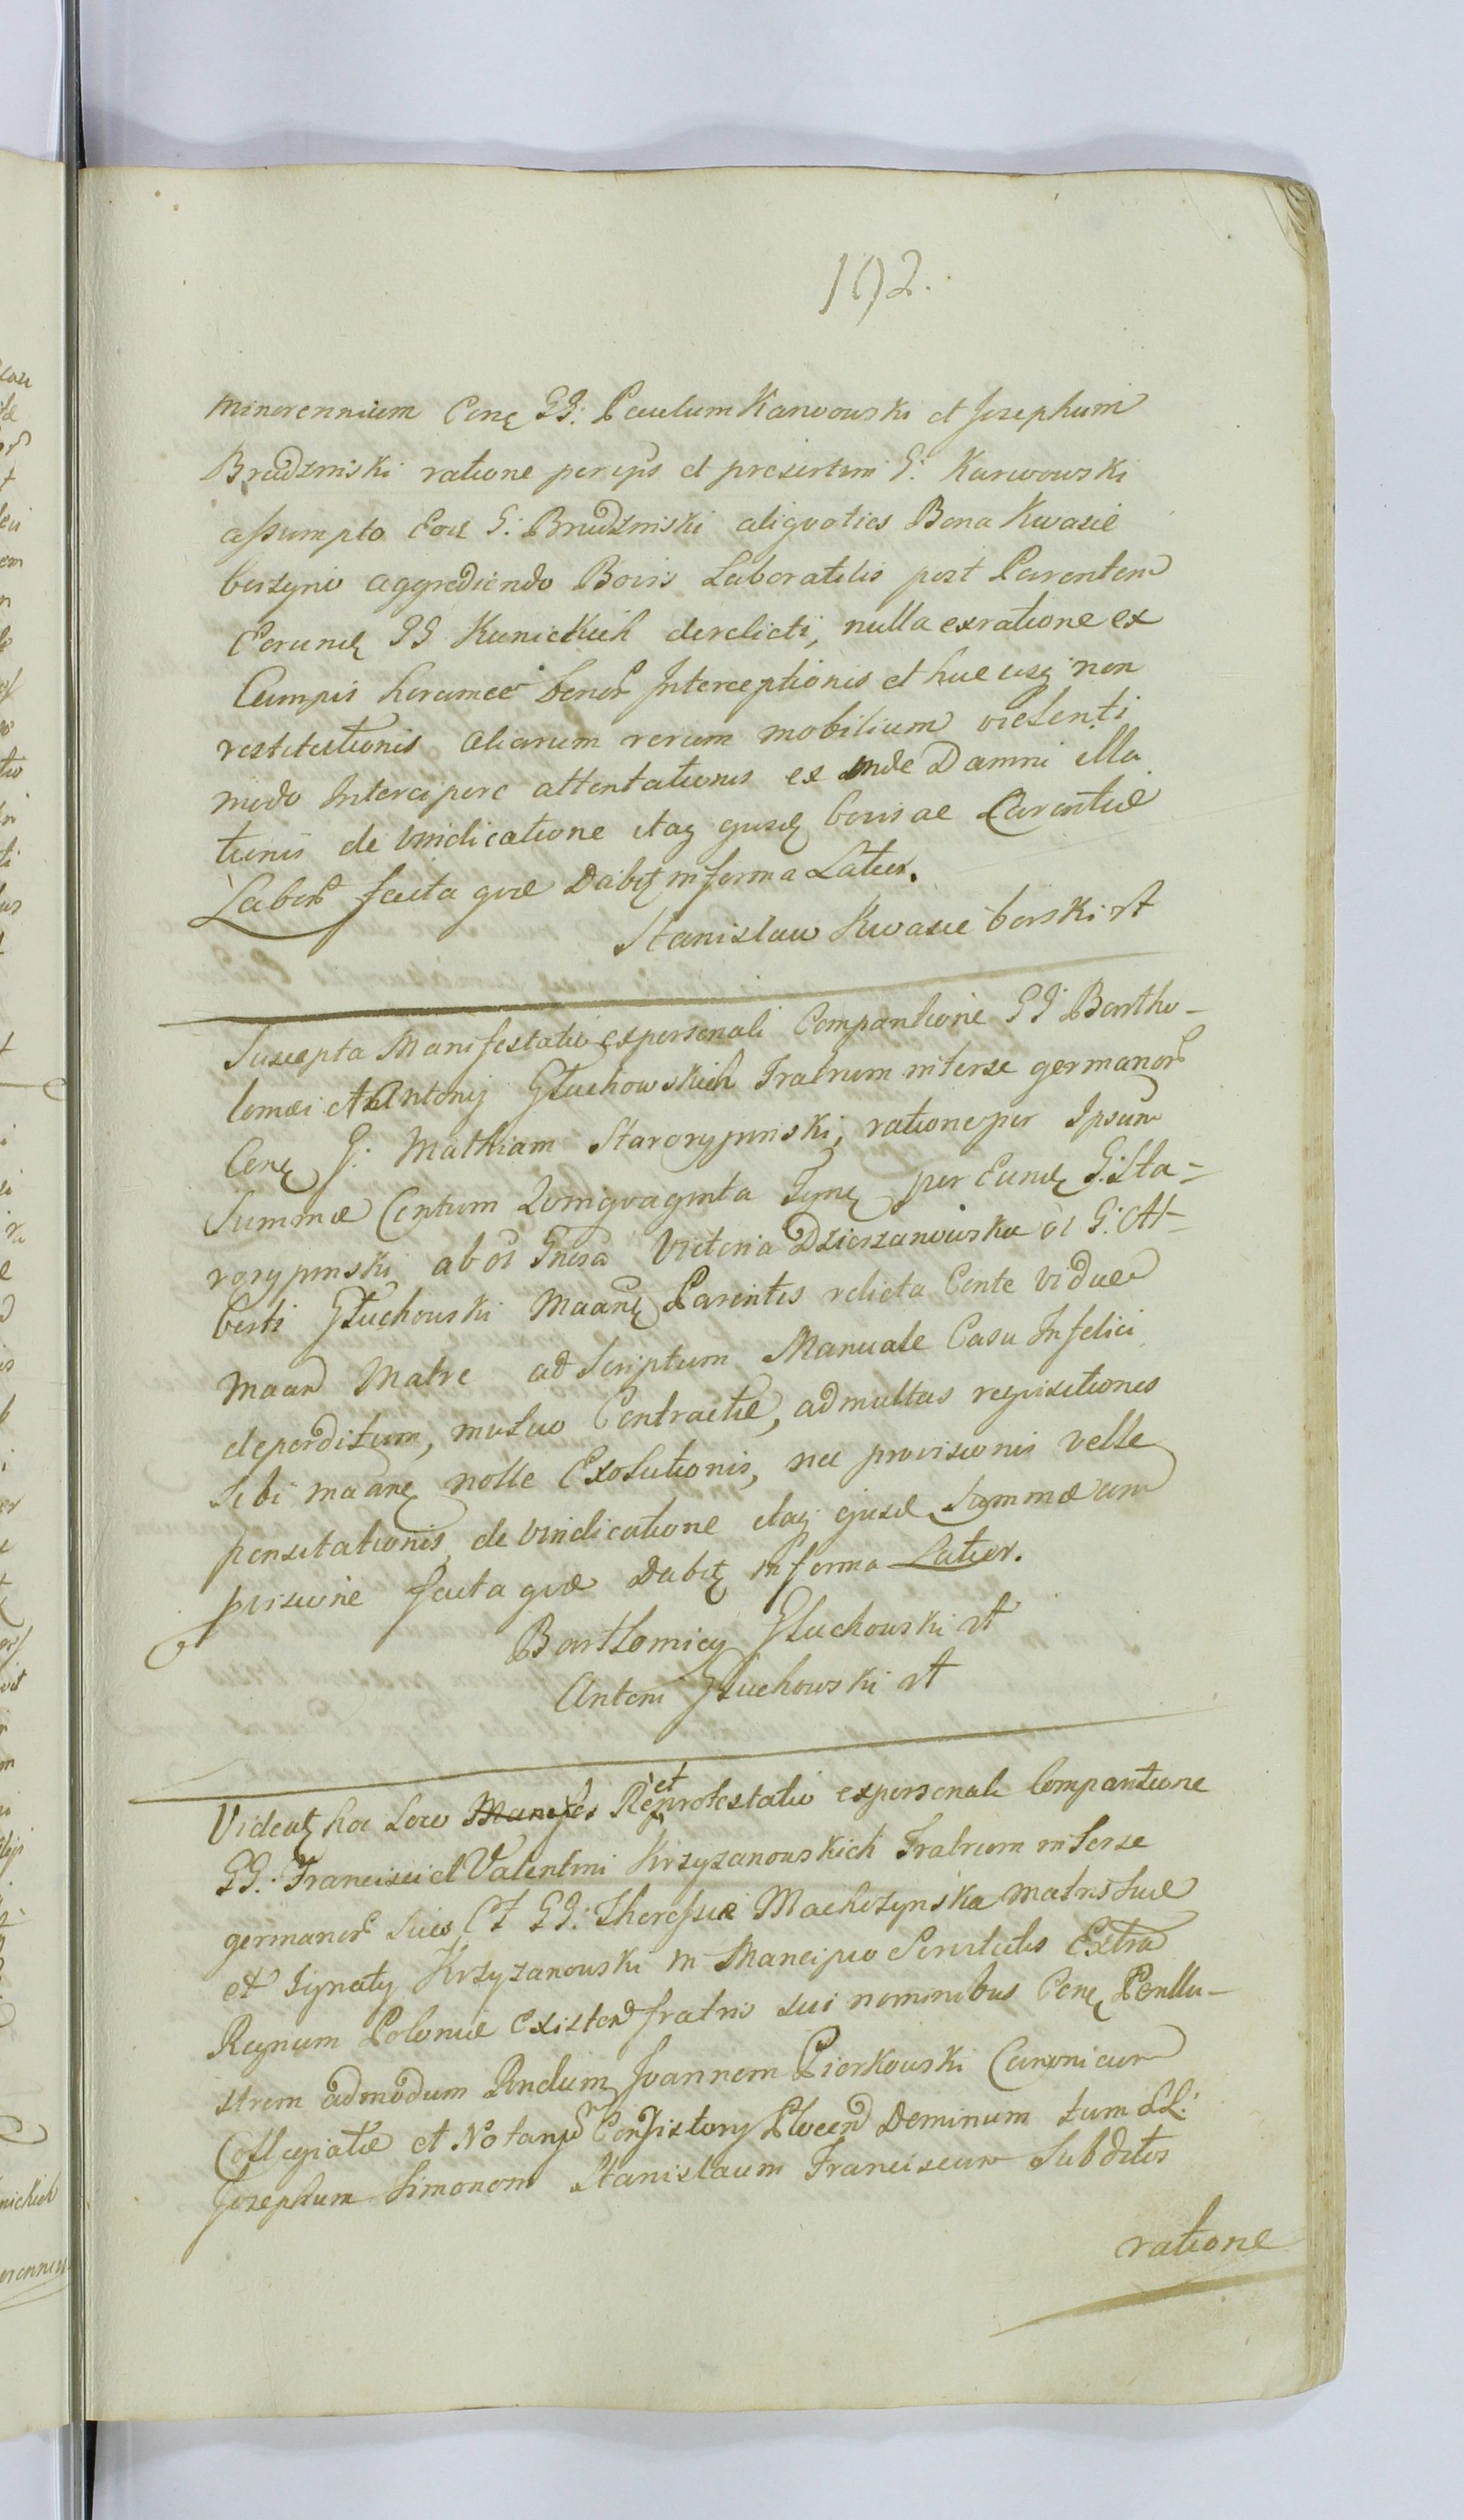 192.
minorennium Cenę GG: Paulum Karwowski et Josephum
Brudzinski ratione per ipős et presertim G: Karwowski
assumpto Eod G: Brudzinski aliquoties Bona Kwasie
borzyno aggrediendo Bovis Laboratilis post Parentem
Eorundę GG Kunickich derelicti, nulla ex ratione ex
Campis horumce bonor Interceptionis et huc usq non
restitutionis aliarum rerum mobilium violenti
modo Intercipere attentationis ex inde Damni illa
tionis de vindicatione itaq ejusdę bovis ac Carentiæ
Labor facta quæ Dabit in forma Latior.
Stanislaw Kwasieborski rt
Suscepta Manifestatio ex personali Comparitione GG: Bartho-
lomæi et Antonij Głuchowskich Fratrum inter se germanor
Cenę G: Mathiam Starorypinski, ratione per Ipsum
Summæ Centum Quinquaginta Tynę per Eundę G: Sta-
rorypinski ab ol Gnosa Victoria Dzierzanowska ol G: Al-
berti Głuchowski Maanę Parentis relicta Conte vidua
maan Matre ad Scriptum Manuale Casu Infelici
deperditum, mutuo Contractæ, ad multas requisitiones
sibi maanę nolle Exolutionis, nec provisionis velle
pensitationis, de vindicatione itaq ejusd Summæ cum
pvisione facta quæ Dabit in forma Latior.
Bartłomiey Głuchowski rt
Antoni Głuchowski rt
Videat hoc Loco Manifes Rep et rotestatio ex personali Comparitione
GG: Francisci et Valentini Krzyzanowskich Fratrum inter se
germanor suis et GG: Theressiæ Machczynska matris suæ
et Ignaty Krzyzanowski in Mancipio Servitutis Extra
Regnum Poloniæ Existen fratris sui nominibus Cenę Penllu-
strem admodum Rndum Joannem Piorkowski Canonicum
Collegiatæ et Notarju Consistory Plocen Dominum tum LL:
Josephum Simonem Stanislaum Franciscum Subditos
ratione